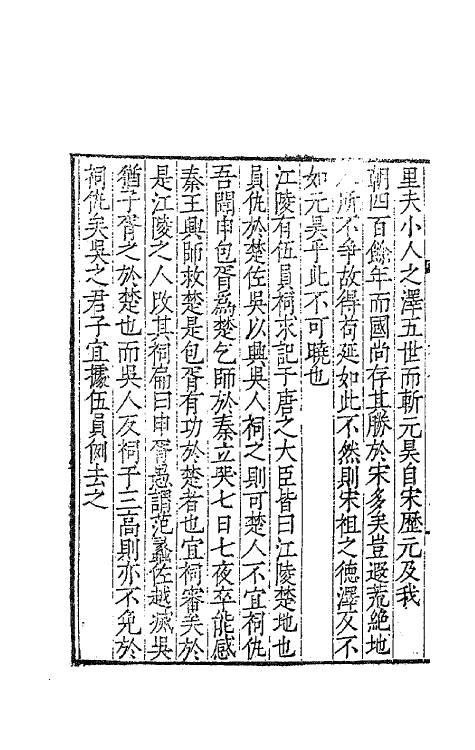 里夫小人之澤五世而斬元昊自宋歷元及我
朝四百餘年而國尚存其勝於宋多矣豈遐荒絶地
所不爭故得苟延如此不然則宋祖之德澤反不
如元昊乎此不可曉也
江陵有伍員祠求記于唐之大臣皆曰江陵楚地也
員仇於楚佐吳以興吳人祠之則可楚人不宜祠仇
吾聞申包胥爲楚乞師於秦立哭七日七夜卒能感
秦王興師救楚是包胥有功於楚者也宜祠審矣於
是江陵之人改其祠扁曰申胥愚謂范蠡佐越滅吳
猶子胥之於楚也而吳人反祠于三高則亦不免於
祠仇矣吳之君子宜據伍員例去之